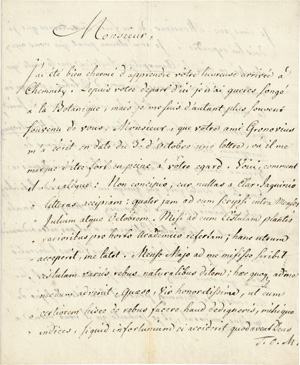 Monsieur,
J'ai été bien charmé d'apprendre vôtre heureuse arrivée à
Chemnitz. Depuis vôtre depart d'ici je n'ai gueres songé
à la Botanique, mais je me suis d'autant plus souvent
souvenu de vous, Monsieur, que vôtre ami Gronovius
m'a écrit en date du 3. d'Octobre une lettre, où il me
marque d'être fort en peine à vôtre egard. Voici, comment
il : Non concipio, cur nullas a Clar. Jaquinio
litteras accipiam: quater jam ad eum scripsi inter
Julium atque Octobrem. Misi ad eum cistulam plantis
rarioribus pro horto Academico refertam; hanc utrum
acceperit, me latet. Mense Majo ad me misisse scribit
cistulam variis rebus naturalibus ditem; haec quoque ad me
nondum advenit. Quaeso, Vir honoratissime, ut eum
certiorem hisce de rebus facere haud dedigneris, mihique
indices, si quid infortunium ei acciderit
T. O. M.